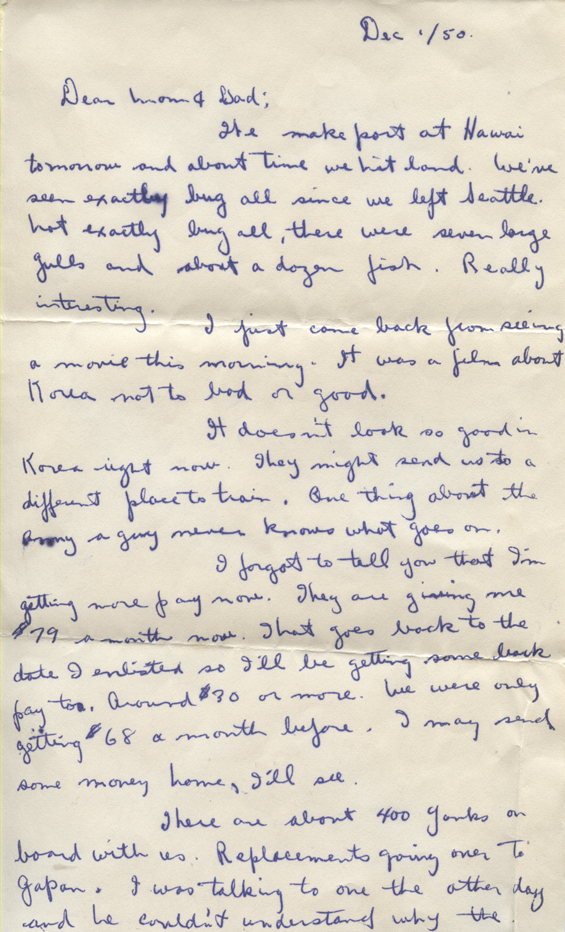 Dec 1/50.
Dear Mom & Dad;
We make port at Hawai
tomorrow and about time we hit land. We've
seen exactly bug all since we left Seattle.
Not exactly bug all, there were seven large
gulls and about a dozen fish. Really
interesting.
I just came back from seeing
a movie this morning. It was a film about
Korea not to bad or good.
It doesn't look so good in
Korea right now. They might send us to a
different place to train. One thing about the
army a guy never knows what goes on.
I forgot to tell you that I'm
getting more pay now. They are giving me
$79 a month now. That goes back to the
date I enlisted so I'll be getting some back
pay too. Around $30 or more. We were only
getting $68 a month before. I may send
some money home, I'll see.
There are about 400 Yanks on
board with us. Replacements going over to
Japan. I was talking to one the other day
and he couldn't understand why the